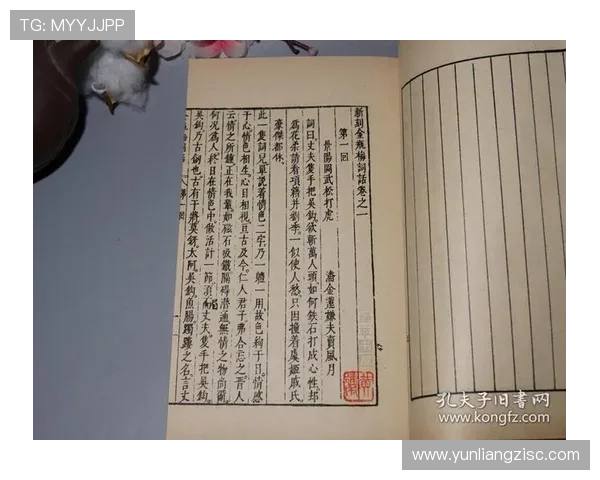 TG: MYYJJPP
新刻金瓶梅詞話卷之一
第一回
景陽岡武松打虎 潘金蓮嫌夫賣風月
詞曰丈夫隻手把吳鈎欲斬萬人頭如何鐵石打成心性却
爲花柔請看項籍并劉季一似使人愁只因撞着虞姬戚氏
豪傑都休
此一隻詞兒單說着情色二字乃一體一用故色絢于目情感
于心情色相生心目相視亘古及今仁人君子弗合忘之晉人
云情之所鍾正在我輩如磁石吸鐵隔碍潛通無情之物尚爾
何况爲人終日在情色中做活計一節須而丈夫隻手把吳鈎
吳鈎乃古劍也古有干將莫鋣太阿吳鈎魚腸躅鏤之名言丈
孔夫子旧书网
www.kongfz.com
www.yunliangzisc.com